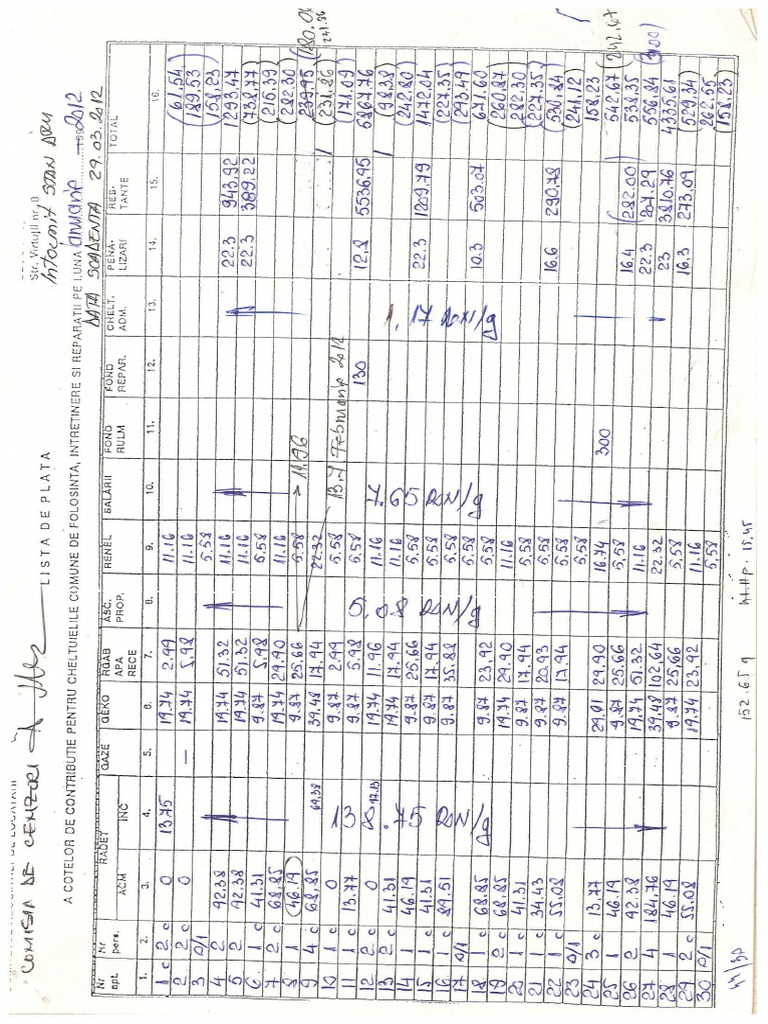 Str. Virtuţii nr. 8
Intocmit STAN DAN
COMISIA DE CENZORI
LISTA DE PLATA
A COTELOR DE CONTRIBUTIE PENTRU CHELTUIELILE COMUNE DE FOLOSINTA, INTRETINERE SI REPARATII PE LUNA 2012
DATA SCADENTA 29.03.2012
Nr apt. Nr pers. RADET ACM INC GAZE GEKO RGAB APA RECE ASC. PROP. RENEL SALARII FOND RULM FOND REPAR. CHELT. ADM. PENA- LIZARI RES- TANTE TOTAL
1. 2. 3. 4. 5. 6. 7. 8. 9. 10. 11. 12. 13. 14. 15. 16.
1 2 c 0 13.75 19.74 2.99 11.16 (61.54)
2 2 c 0 — 19.74 5.98 11.16 (189.53)
3 D/1 5.58 (158.23)
4 2 92.38 19.74 51.32 11.16 22.3 943.92 1293.47
5 2 92.38 19.74 51.32 11.16 22.3 389.22 (738.77)
6 1 c 41.31 9.87 5.98 5.58 (215.39)
7 2 c 68.85 19.74 29.90 11.16 (282.30)
8 1 46.19 9.87 25.66 5.58 11.96 239.95 (180.0 241.86
9 4 c 68.85 69.38 39.48 17.94 22.32 (231.86)
10 1 0 9.87 2.99 5.58 13.7 Februarie 2012 (171.09)
11 1 c 13.77 9.87 5.98 5.58 130 12.8 5536.95 5867.76
12 2 c 0 19.74 11.96 11.16 (98.38)
13 2 c 41.31 19.74 17.94 11.16 (242.80)
14 1 46.19 9.87 25.66 5.58 22.3 1209.79 1472.04
15 1 c 41.31 9.87 17.94 5.58 (227.35)
16 1 c 89.51 9.87 35.88 5.58 (293.49)
17 D/1 5.58 10.3 503.07 671.60
18 1 c 68.85 9.87 23.92 5.58 (260.87)
19 2 c 68.85 19.74 29.90 11.16 (282.30)
20 1 c 41.31 9.87 17.94 5.58 (227.35)
21 1 c 34.43 9.87 20.93 5.58 16.6 290.78 (530.84)
22 1 c 55.08 9.87 17.94 5.58 (241.12)
23 D/1 5.58 158.23
24 3 c 13.77 29.01 29.90 16.74 300 542.67
25 1 46.19 9.87 25.66 5.58 16.4 (282.00) 538.35 (242.67
26 2 92.38 19.74 51.32 11.16 22.3 207.29 556.84 (300)
27 4 184.76 39.48 102.64 22.32 23 3810.76 4335.61
28 1 46.19 9.87 25.66 5.58 16.3 273.09 (529.34)
29 2 c 55.08 19.74 23.92 11.16 262.55
30 D/1 5.58 (158.23)
13.75 RON/g
5.08 RON/g
7.65 RON/g
1.17 RON/g
44/37
152.65 g
15.45